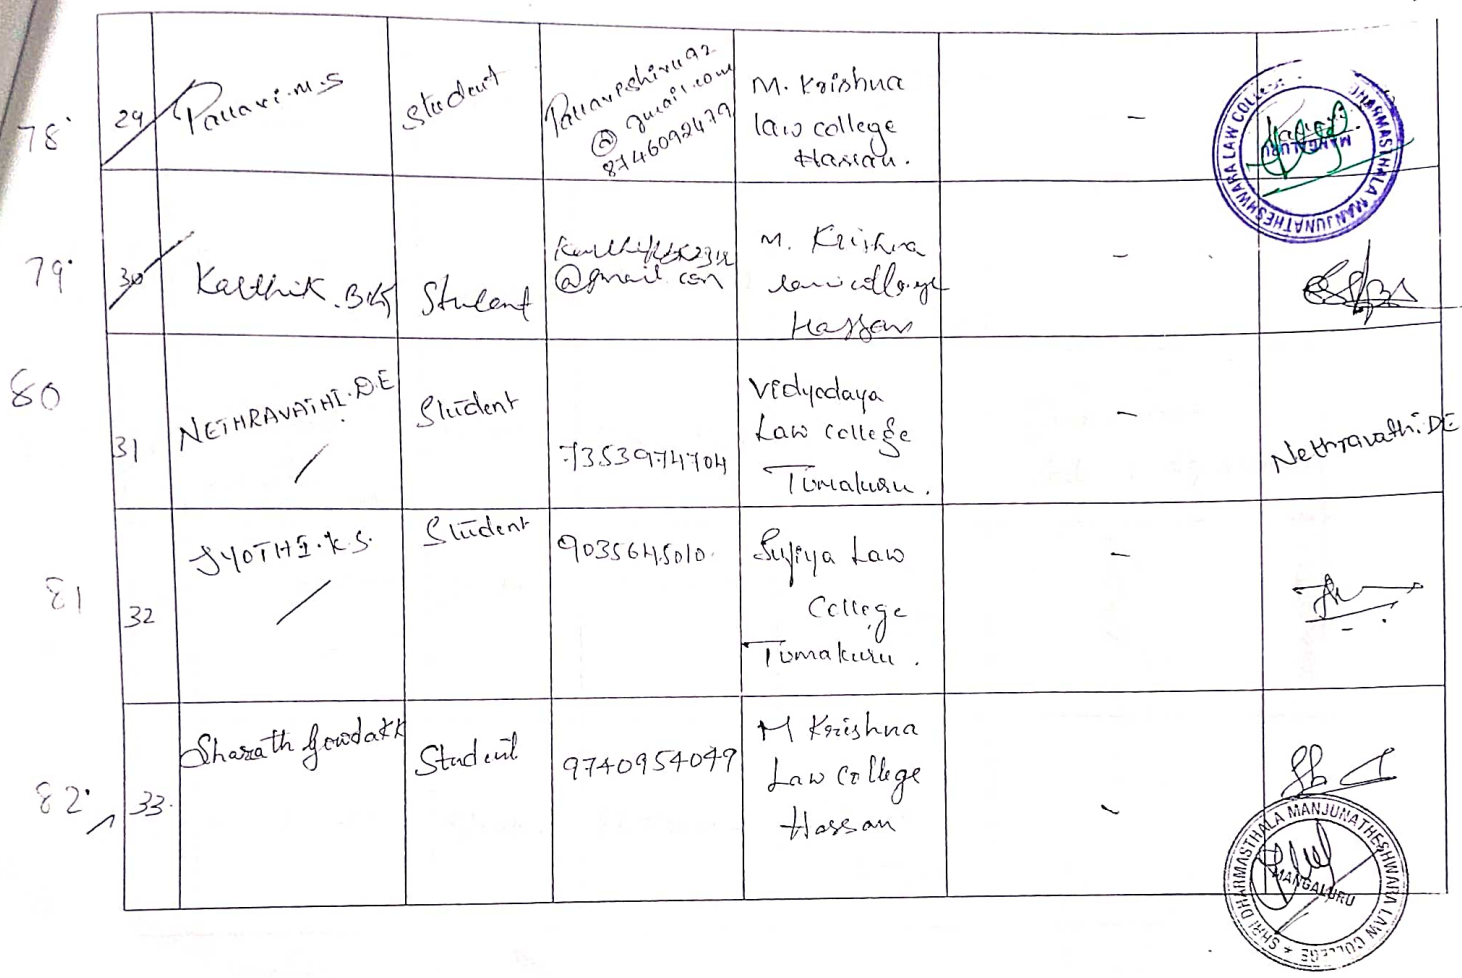 78
29
Pallavi.M.S
Student
Pallavishivu92
@gmail.com
8746092479
M. Krishna
law college
Hassan.
-
79
30
Karthik.
Student
@gmail.com
M. Krishna
law college
Hassan
-
80
31
NETHRAVATHI.D.E
Student
7353974704
Vidyodaya
Law college
Tumakuru.
-
Nethravathi.DE
81
32
JYOTHI.K.S.
Student
9035645010.
Sufiya Law
College
Tumakuru.
-
82
33.
Sharath Gowda KK
Student
9740954049
M Krishna
Law College
Hassan
-
SHRI DHARMASTHALA MANJUNATHESHWARA LAW COLLEGE
MANGALURU
DHARMASTHALA MANJUNATHESHWARA LAW COLLEGE
MANGALURU